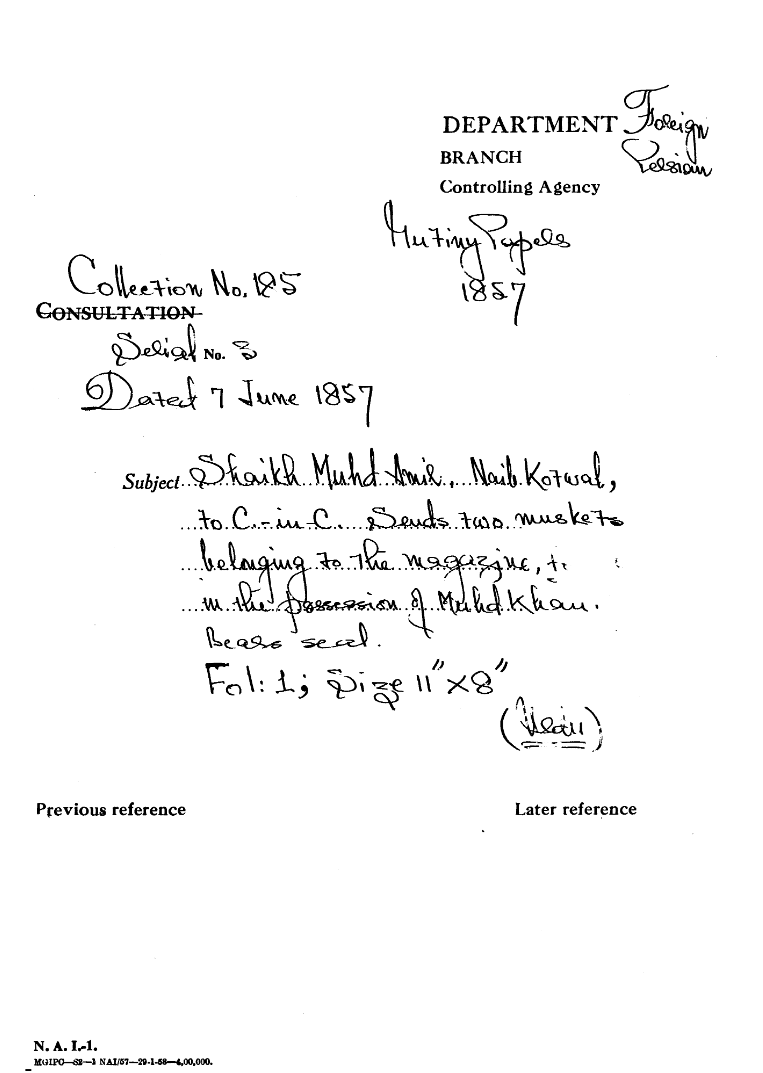 DEPARTMENT Foreign
BRANCH Persian
Controlling Agency
Mutiny Papers
1857
Collection No. 185
CONSULTATION
Serial No. 3
Dated 7 June 1857
Subject Shaikh Muhd Amir, Naib Kotwal,
to C.-in-C. Sends two muskets
belonging to the magazine, &
in the possession of Muhd Khan.
Bears seal.
Fol: 1; Size 11" x 8"
Previous reference
Later reference
N. A. I.-1.
MGIPC—S2—1 NAI/57—29-1-58—4,00,000.